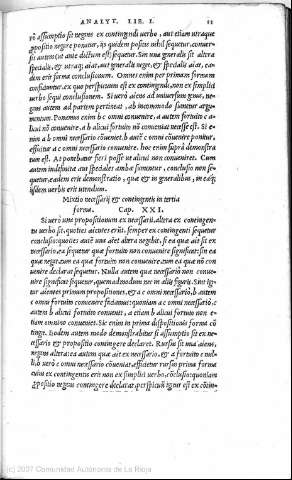 ANALYT. LIB. I.
rò assumptio sit negans ex contingendi uerbo, aut etiam utraque
propositio negare ponatur, ijs quidem positis nihil sequetur. conuer-
sis autem sicut ante dictum est, sequetur. Sin una generalis sit altera
specialis, & utraque aiat, aut generalis neget, & specialis aiat, ea-
dem erit forma conclusionum. Omnes enim per primam formam
conficiuntur. ex quo perspicuum est ex contingenti, non ex simplici
uerbo sequi conclusionem. Si uerò aiens ad uniuersum genus, ne-
gans autem ad partem pertineat, ab incommodo sumetur argu-
mentum. Ponamus enim b c omni conuenire, a autem fortuito c ali-
cui nō conuenire. a b alicui fortuito nō conueniat necesse est. Si e-
nim a b omni necessariò cōueniet. b autē c omni cōuenire ponitur,
efficitur a c omni necessariò conuenire. hoc enim suprà demonstra-
tum est. At ponebatur fieri posse ut alicui non conueniret. Cum
autem indefinitae aut speciales ambae sumentur, conclusio non se-
quetur. eadem erit demonstratio, quae & in generalibus, & eis-
dem uerbis erit utendum.
Mixtio necessarij & contingentis in tertia
forma. Cap. XXI.
Si uerò una propositionum ex necessariis, altera ex contingen-
tu uerbo sit, quoties aiet utraque, semper ex contingenti sequetur
conclusio: quoties aiet una altera negabit, si ea quae ait sit ex
necessario, ea sequetur quae fortuito non conuenire significat: sin ea
quae negat, tum ea quae fortuito non conuenire, tum ea quae nō con-
uenire declarat sequetur. Nulla autem quae necessariò non conue-
nire significet sequetur, quemadmodum nec in alijs figuris. Sint igi-
tur aientes primùm propositiones, & a c omni necessariò, b autem
c omni fortuito conuenire sciamus: quoniam a c omni necessariò, c
autem b alicui fortuito conuenit, a etiam b alicui fortuito non e-
tiam omnino conueniet. Sic enim in prima dispositionis forma cō-
tingit. Eodem autem modo demonstrabitur si assumptio sit ex ne-
cessario & propositio contingere declaret. Rursus sit una aiens,
negans altera: ea autem quae ait ex necessario, & a fortuito c nul-
li, b uerò c omni necessario cōueniat. efficietur rursus prima forma
cum ex contingentis erit non ex simplici uerbo, cōclusio: quoniam
propositio negans contingere declarat. perspicuū igitur est ex cōtin-
(c) 2007 Comunidad Autónoma de La Rioja